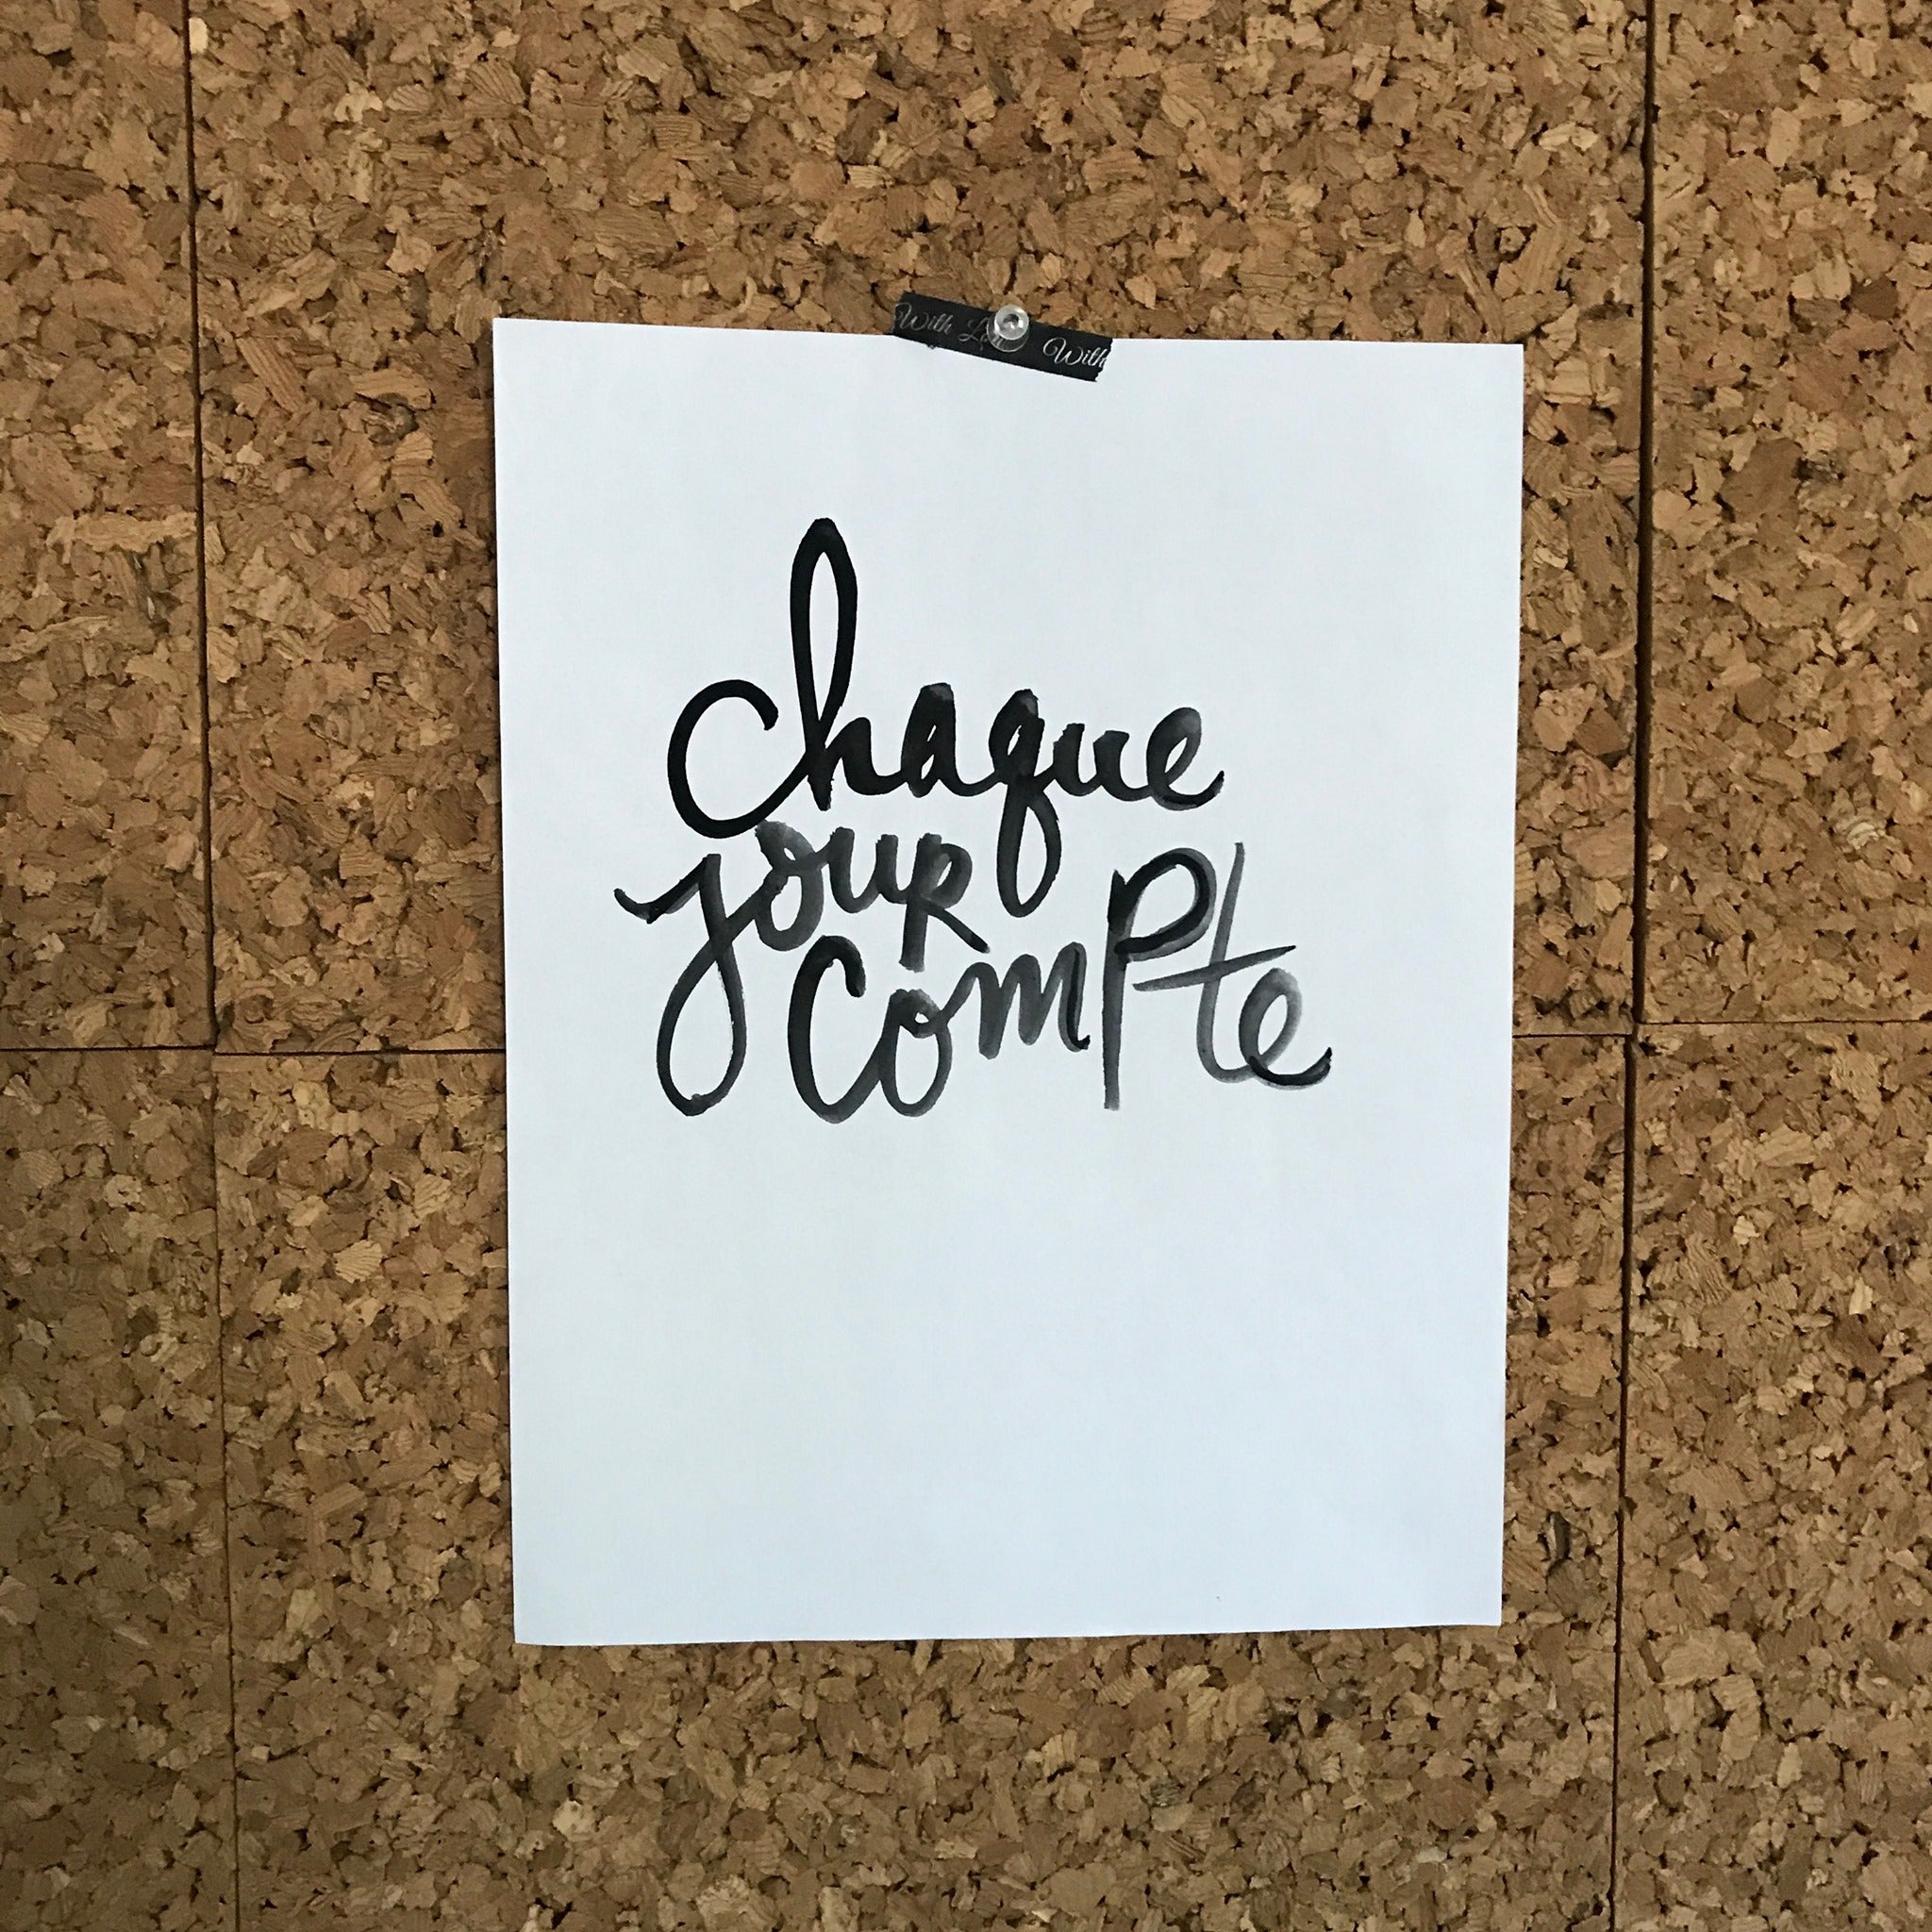 With Lo With
chaque
jour
compte